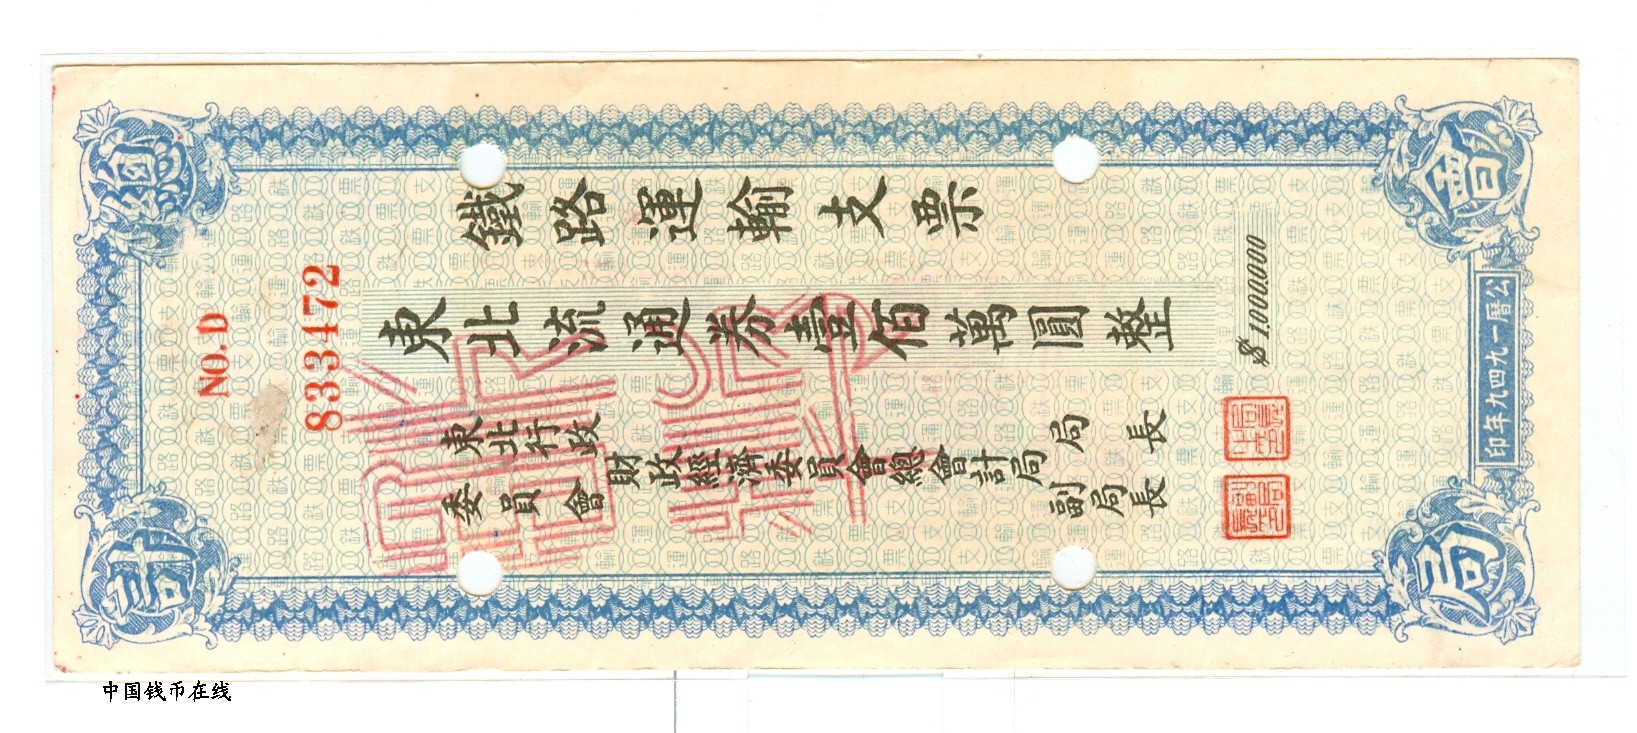 總會計局
鐵路運輸支票
東北流通券壹佰萬圓整
$1,000,000
東北行政委員會
財政經濟委員會總會計局
局長
副局長
NO. D
8333472
公曆一九四九年印
中国钱币在线